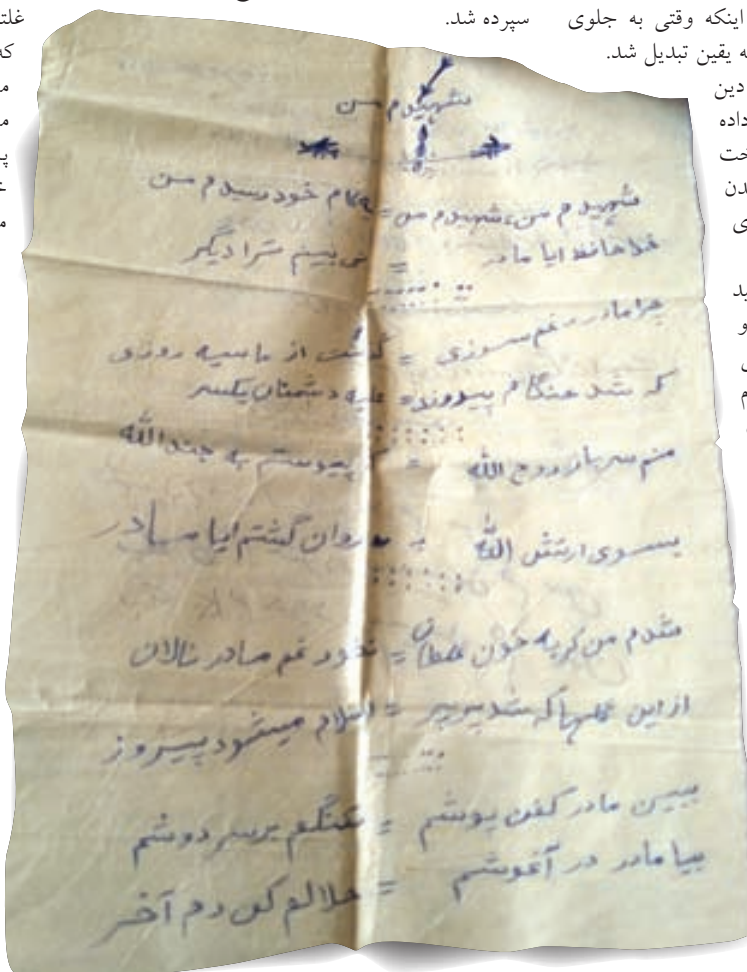 اینکه وقتی به جلوی
ه یقین تبدیل شد.
دین
داده
خت
دن
ی
ید
و
ی
م
سپرده شد.
شهیدم من
شهیدم من، شهیدم من = به کام خود رسیدم من
خداحافظ ایا مادر = نمی بینم ترا دیگر
چرا مادر ز غم سوزی = گذشت از ما سیه روزی
که شد هنگام = علیه دشمنان یکسر
منم سرباز روح الله = که پیوستم به جند الله
بسوی ارتش الله = روان گشتم ایا مادر
شدم من گر به خون غلطان = نخور غم مادر نالان
از این گلها که شد پرپر = میشود پیروز
ببین مادر کفن پوشم = تفنگم بر سر دوشم
بیا مادر در آغوشم = حلالم کن دم آخر
غلت
که
م
م
پ
م